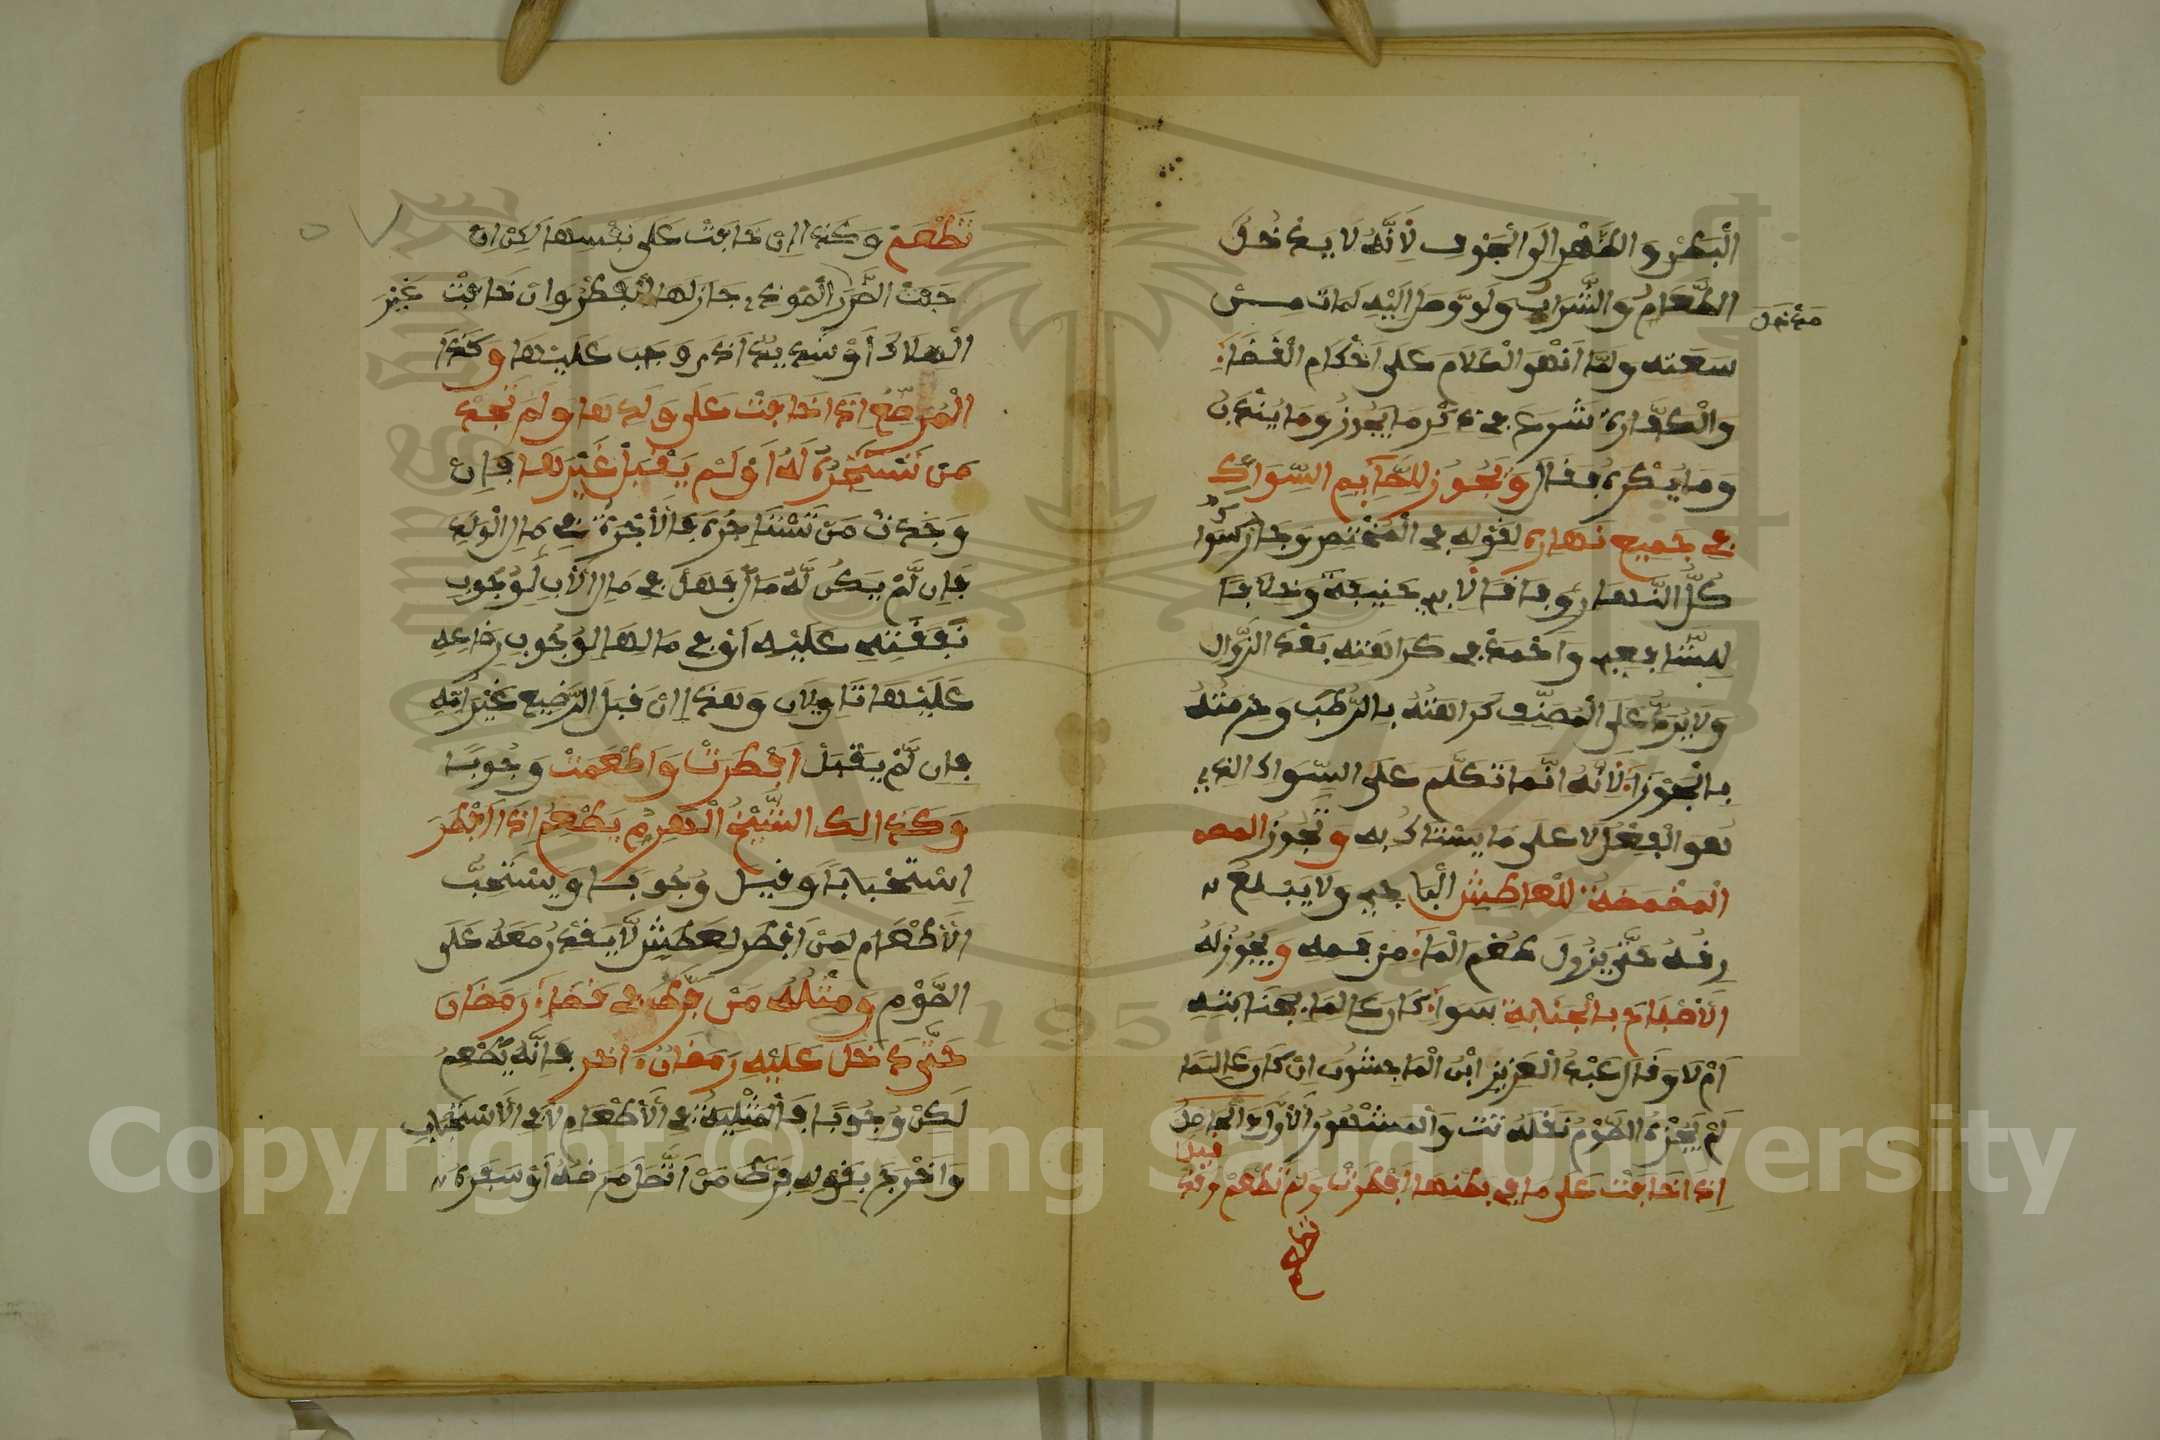 البطن والظهر الى الجوف لأنه لا يدخل
الطعام والشراب ولو وصل اليه لمات من
مدخل
ساعته ولما انهى الكلام على احكام القضاء
والكفارة شرع في ذكر ما يجوز وما يندب
وما يكره فقال ويجوز للصائم السواك
في جميع نهاره لقوله في المختصر وجاز سواك
كل النهار وفاقا لابي حنيفة وخلافا
للشافعي واحمد في كراهته بعد الزوال
ولا يرد على المصنف كراهته بالرطب وحرمته
بالجوزاء لأنه انما تكلم على السواك الذي
هو الفعل لا على ما يستاك به وتجوز المض
المضمضة للعطش الباجي ولا يبلع
ريقه حتى يزول طعم الماء من فمه ويجوز له
الاصباح بالجنابة سواء كان عالما بجنابته
ام لا وقال عبد العزيز ابن الماجشون ان كان عالما
لم يجزه الصوم نقله تت والمشهور الأول والحامل
قيل
اذا خافت على ما في بطنها افطرت ولم تطعم وقد
تطعم وكذا ان خافت على نفسها لكن ان
خفت الضرر الموذي جاز لها الفطر وان خافت غير
الهلاك أو شديد اذى وجب عليها وكذا
المرضع اذا خافت على ولدها ولم تجد
من تستاجره له او لم يقبل غيرها فان
وجدت من تستاجره فالأجرة في مال الولد
فإن لم يكن له مال فهل في مال الأب لوجوب
نفقته عليه او في مالها لوجوب رضاعه
عليها تاويلان وهذا ان قبل الرضيع غير امه
فإن لم يقبل افطرت واطعمت وجوبا
وكذالك الشيخ الهرم يطعم اذا افطر
استحبابا وقيل وجوبا ويستحب
الأطعام لمن افطر لعطش لا يقدر معه على
الصوم ومثله من فرط في قضاء رمضان
حتى دخل عليه رمضان اخر فإنه يطعم
لكن وجوبا فالمثلية في الأطعام لا في الأستحباب
واخرج بقوله فرط من اتصل مرضه أو سفره